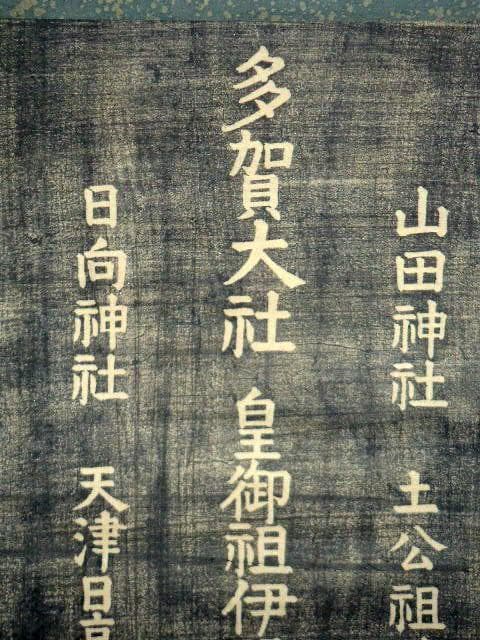 山田神社 土公祖
多賀大社 皇御祖伊
日向神社 天津日